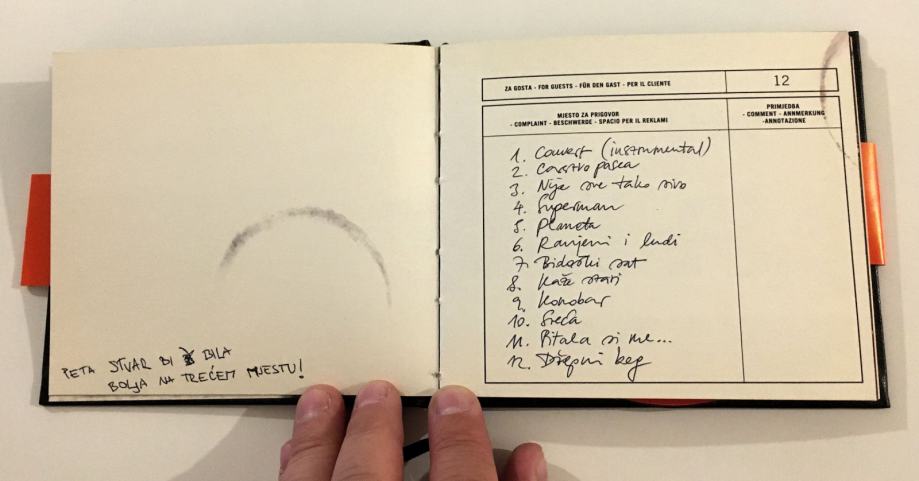 PETA STVAR BI BILA
BOLJA NA TREĆEM MJESTU!
ZA GOSTA - FOR GUESTS - FÜR DEN GAST - PER IL CLIENTE
12
MJESTO ZA PRIGOVOR
- COMPLAINT - BESCHWERDE - SPACIO PER IL REKLAMI
PRIMJEDBA
- COMMENT - ANNMERKUNG
-ANNOTAZIONE
1. Couvert (instrumental)
2. Carstvo pasea
3. Nije sve tako sivo
4. Superman
5. Planeta
6. Ranjeni i ludi
7. sat
8. Kaže stari
9. Konobar
10. Sreća
11. Pitala si me...
12. Džepni beg